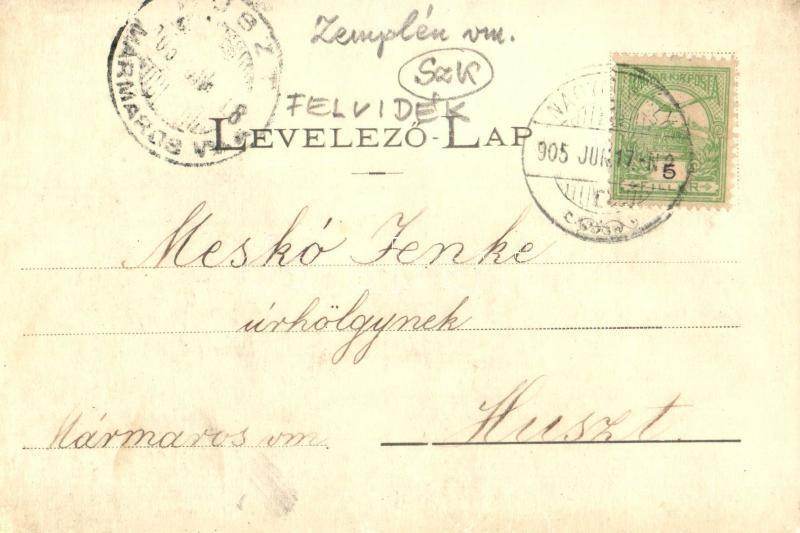 HUSZT
MÁRMAROS
Zemplén vm.
SzK
FELVIDÉK
LEVELEZŐ-LAP
MAGYAR KIR. POSTA
5
FILLÉR
905 JUN 17
Meskó Jenke
úrhölgynek
Mármaros vm. Huszt